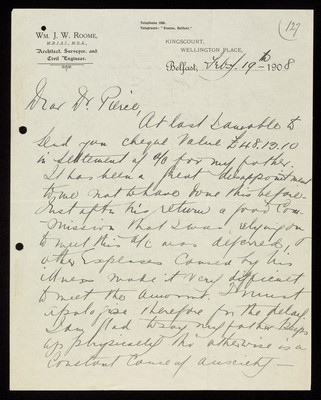 127
Telephone 690.
Telegrams: "Roome, Belfast."
WM. J. W. ROOME,
M.R.I.A.I., M.S.A.,
Architect, Surveyor, and
Civil Engineer.
KINGSCOURT,
WELLINGTON PLACE,
Belfast, Feby. 19th 1908
Dear Dr. Pierce,
At last I am able to
send you cheque value £48.13.10
in settlement of a/c for my father.
It has been a great disappointment
to me not to have done this before
Just after his return a good Com-
mission that I was relying on
to meet this a/c was deferred, &
other expenses caused by his
illness made it very difficult
to meet the amount. I must
apologise therefore for the delay.
I am glad to say my father keeps
up physically tho' otherwise is a
constant cause of anxiety —